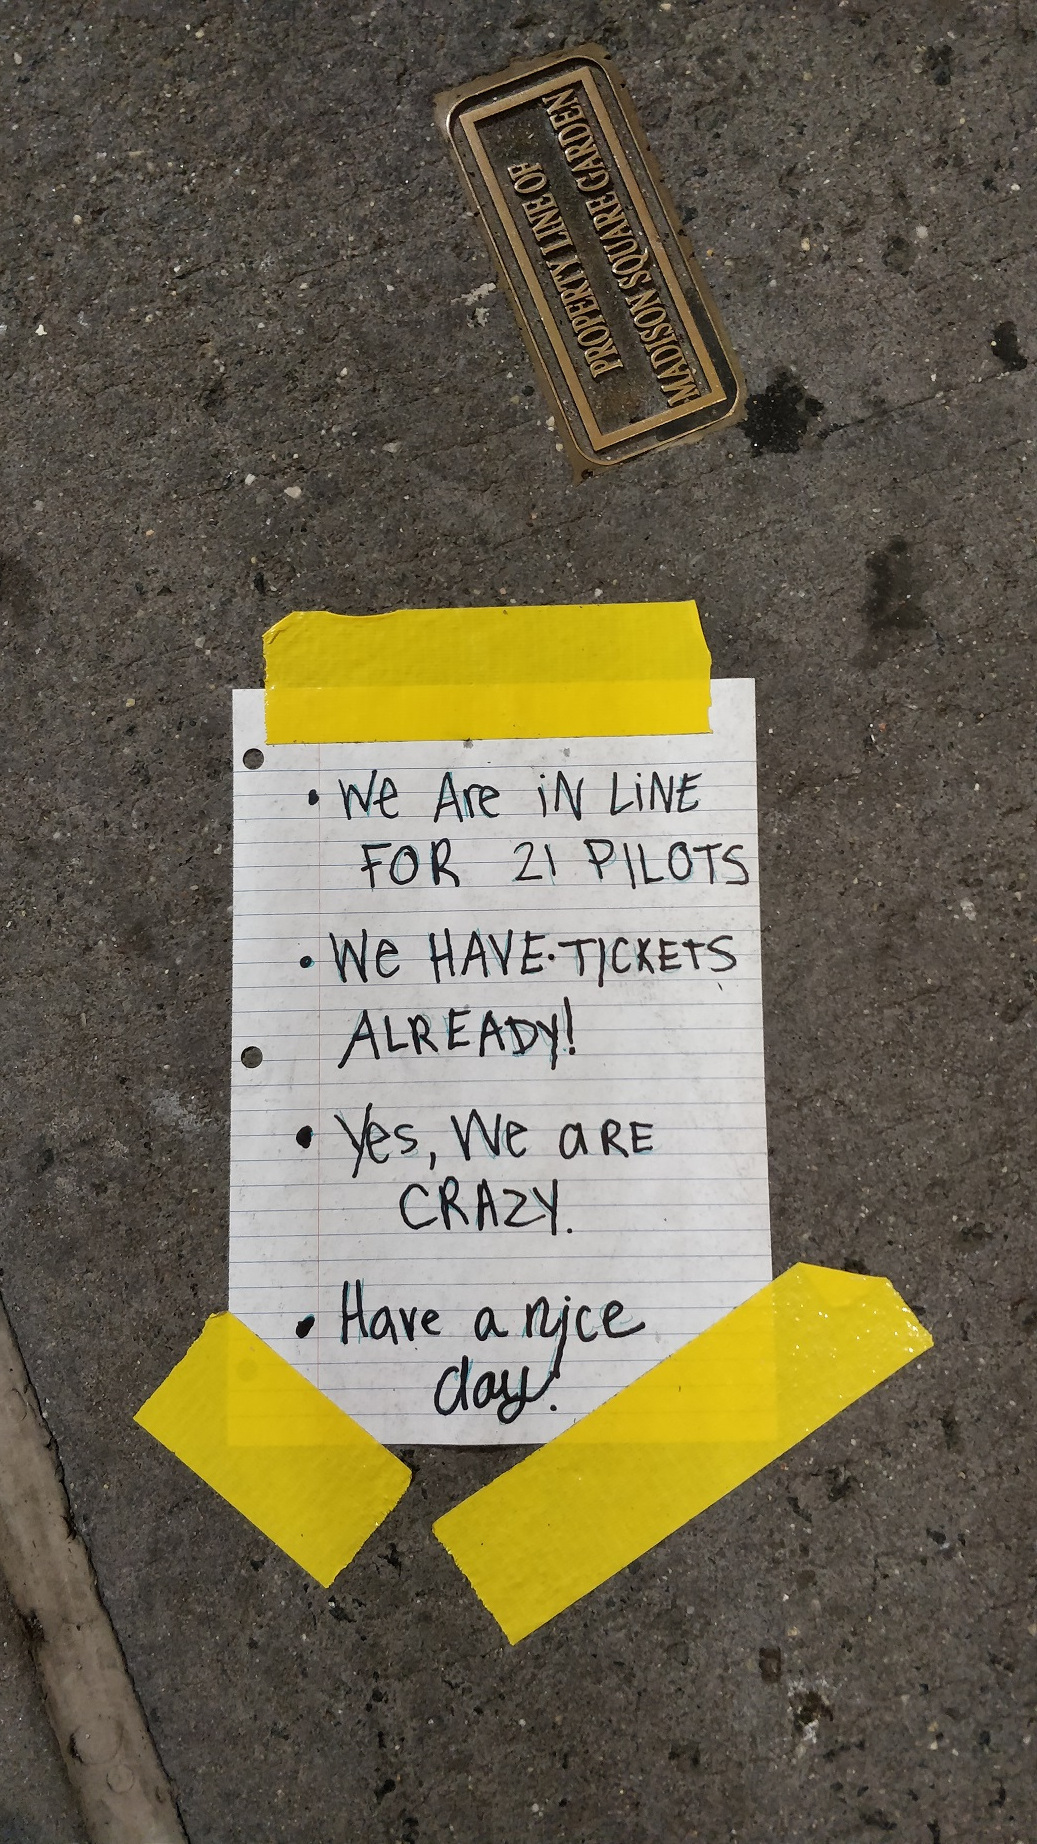 PROPERTY LINE OF
MADISON SQUARE GARDEN
• We Are iN LiNE
FOR 21 PILOTS
• We HAVE·TICKETS
ALREADY!
• Yes, We aRE
CRAZY.
• Have a nice
day!